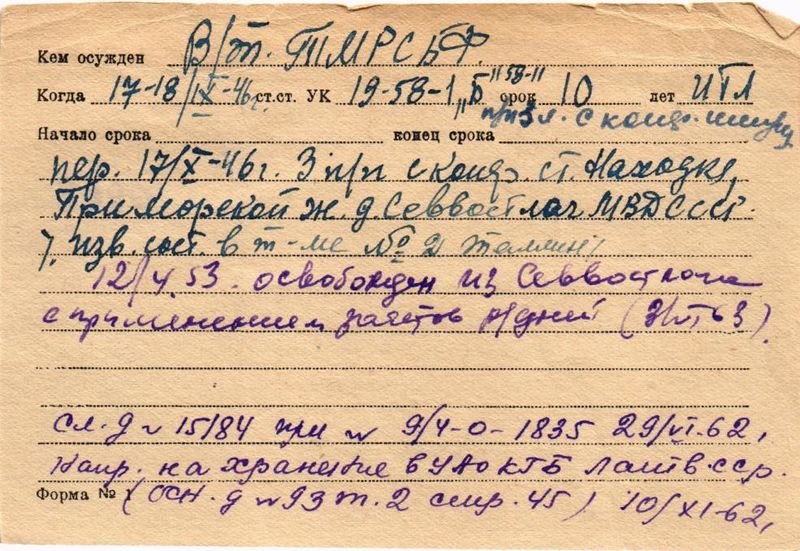 Кем осужден В/т. ТМРСБФ.
Когда 17-18/IX-46г. ст.ст. УК 19-58-1 "Б" "58-11" срок 10 лет ИТЛ
Начало срока конец срока п/п 3 л. с конф. имущ
пер. 17/X-46г. 3 п/п с конф. ст. Находка,
Приморской ж.д. Севвостлаг МВД СССР.
7. изв. сост. в т-ме № 2 Таллин,
12/V.53. освобожден из Севвостлага
с применением зачетов р/дней
сл. д № 15184 при № 9/4-0-1835 29/VI-62,
Напр. на хранение в УАО КГБ Латв. сср.
Форма № 1 (осн. д № 93 т. 2 стр. 45) 10/XI-62,